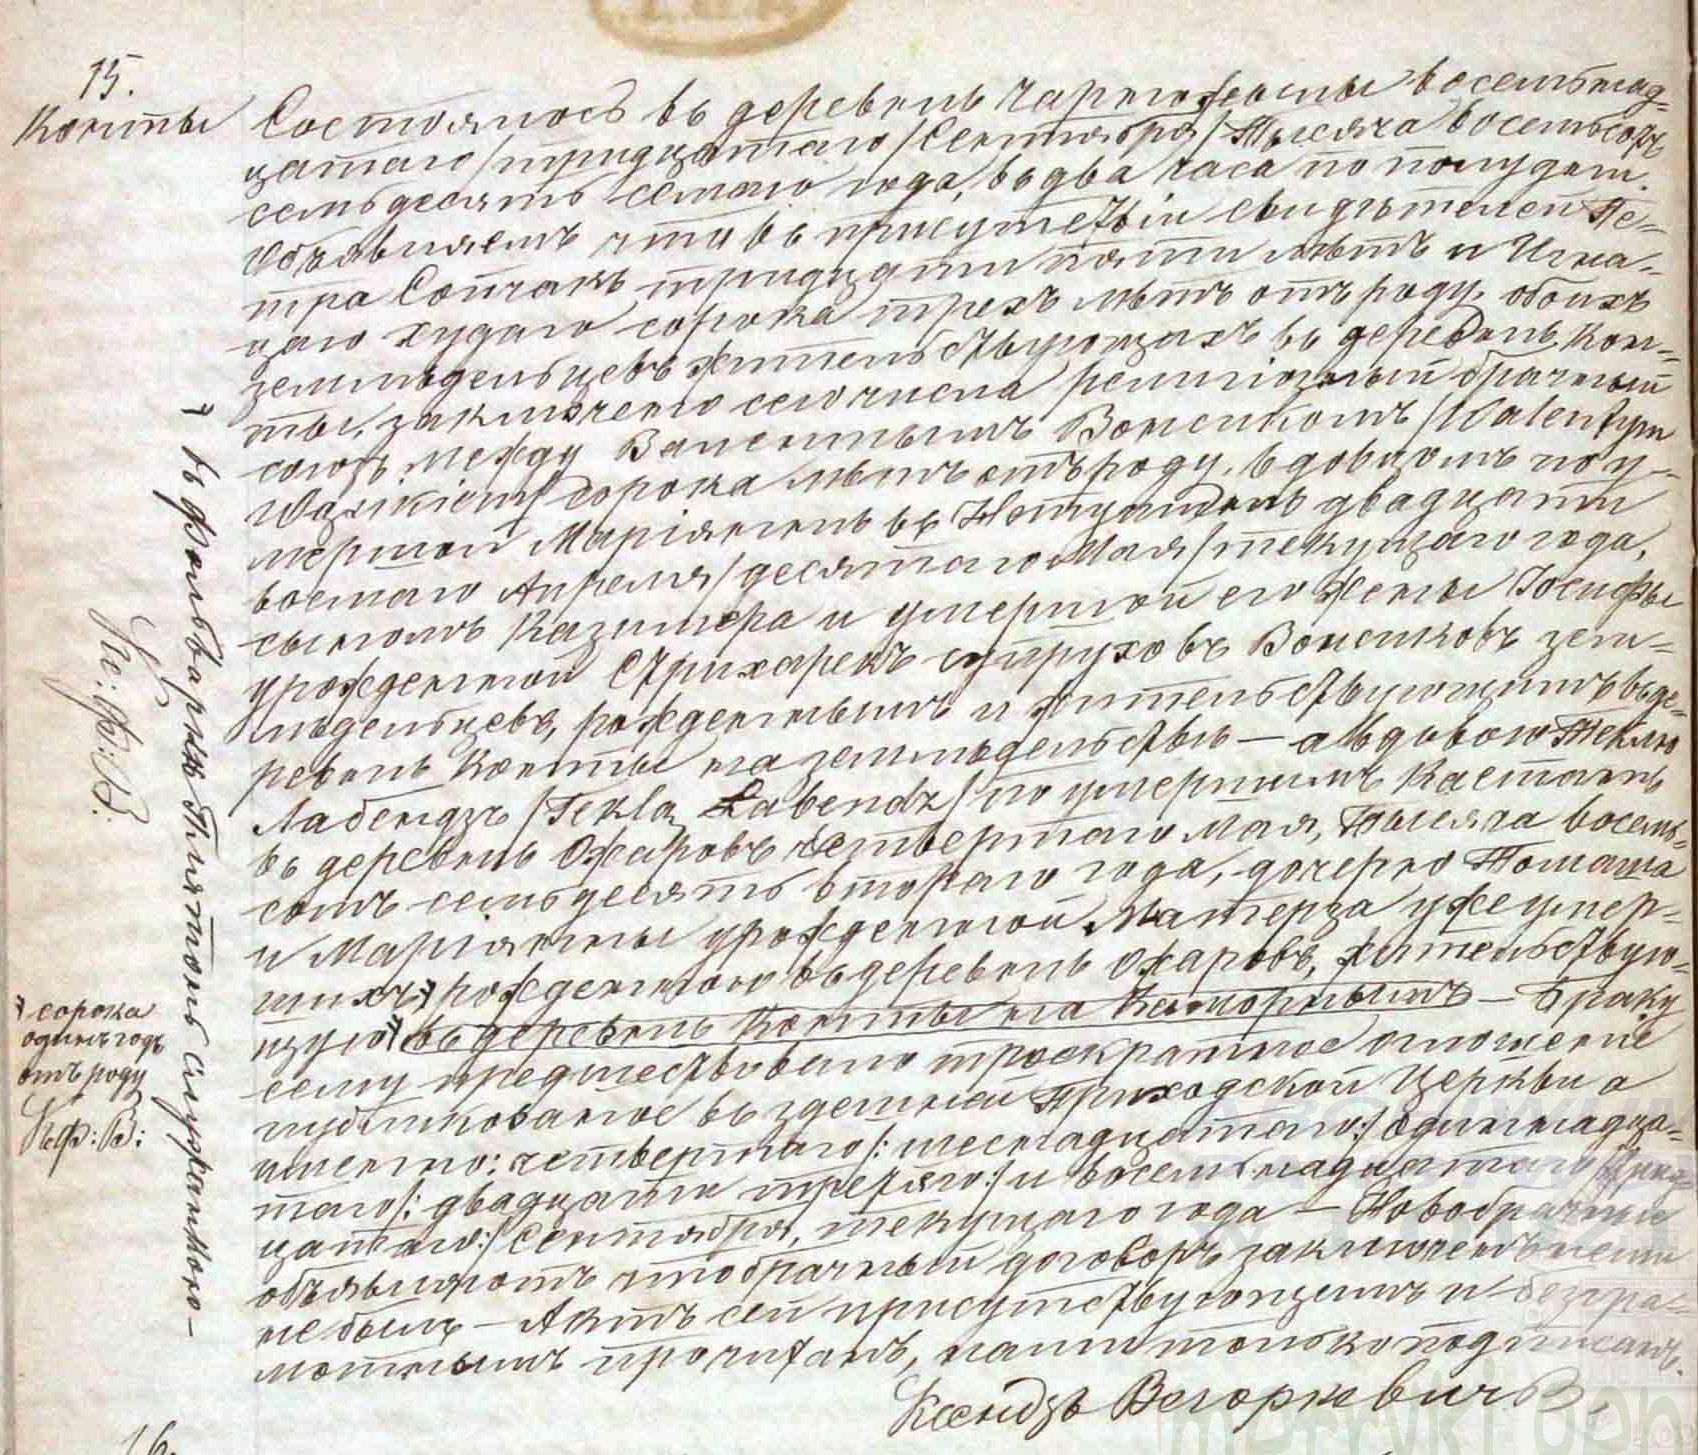 15.
Конты
Состоялось въ деревнѣ Чарножилы восемьнад=
цатаго /тридцатаго/ Сентября/ Тысяча восемьсотъ
семьдесятъ седьмаго года, въ два часа по полудни.
Объявляемъ что въ присутствіи свидѣтелей Пе=
тра тридцати пяти лѣтъ и Игна=
цаго Худаго сорока трехъ лѣтъ отъ роду, обоихъ
земледѣльцевъ жительствующихъ въ деревнѣ Кон=
ты, заключено сего числа религіозный брачный
союзъ между Валентымъ Вонсикомъ /Walentym
Wąsikiem/ сорока лѣтъ отъ роду, вдовцомъ по у=
мершей Маріяннѣ въ двадцати
восмаго Апреля /десятаго Мая/ текущаго года,
сыномъ Казимера и умершой его жены Іосифы
урожденной Стрихарекъ супруговъ Вонсиковъ зем=
ледѣльцевъ, рожденнымъ и жительствующимъ въ де=
ревнѣ Конты на земледѣльствѣ — а вдовою Теклю
Лабендзъ /Teklą Łabendz/ по умершимъ Каетанѣ
въ деревнѣ Ожаровъ четвертаго Мая, Тысяча восемь=
сотъ семьдесятъ втораго года, дочерью Томаша
и Маріянны урожденной Матерга уже умер=
шихъ рожденною въ деревнѣ Ожаровъ, жительствую=
щую въ деревнѣ Конты на Каморнымъ — Браку
сему предшествовало троекратное оглошеніе
публикованное въ здешней Приходской Церкви а
именно: четвертаго /: шеснадцатаго :/ одиннадца=
таго /: двадцать третяго :/ и восемьнадцатаго /: трид=
цатаго :/ Сентября, текущаго года — Новобрачніи
объявляютъ что брачный договоръ заключенъ ними
не былъ — Актъ сей присутствующимъ и безгра=
мотнымъ прочитанъ, нами только подписанъ.
Ксендзъ
въ фольваркѣ Плятонь служанкою —
Кс: Ф: В:
сорока
одинъ годъ
отъ роду
Кс: Ф: В:
16.